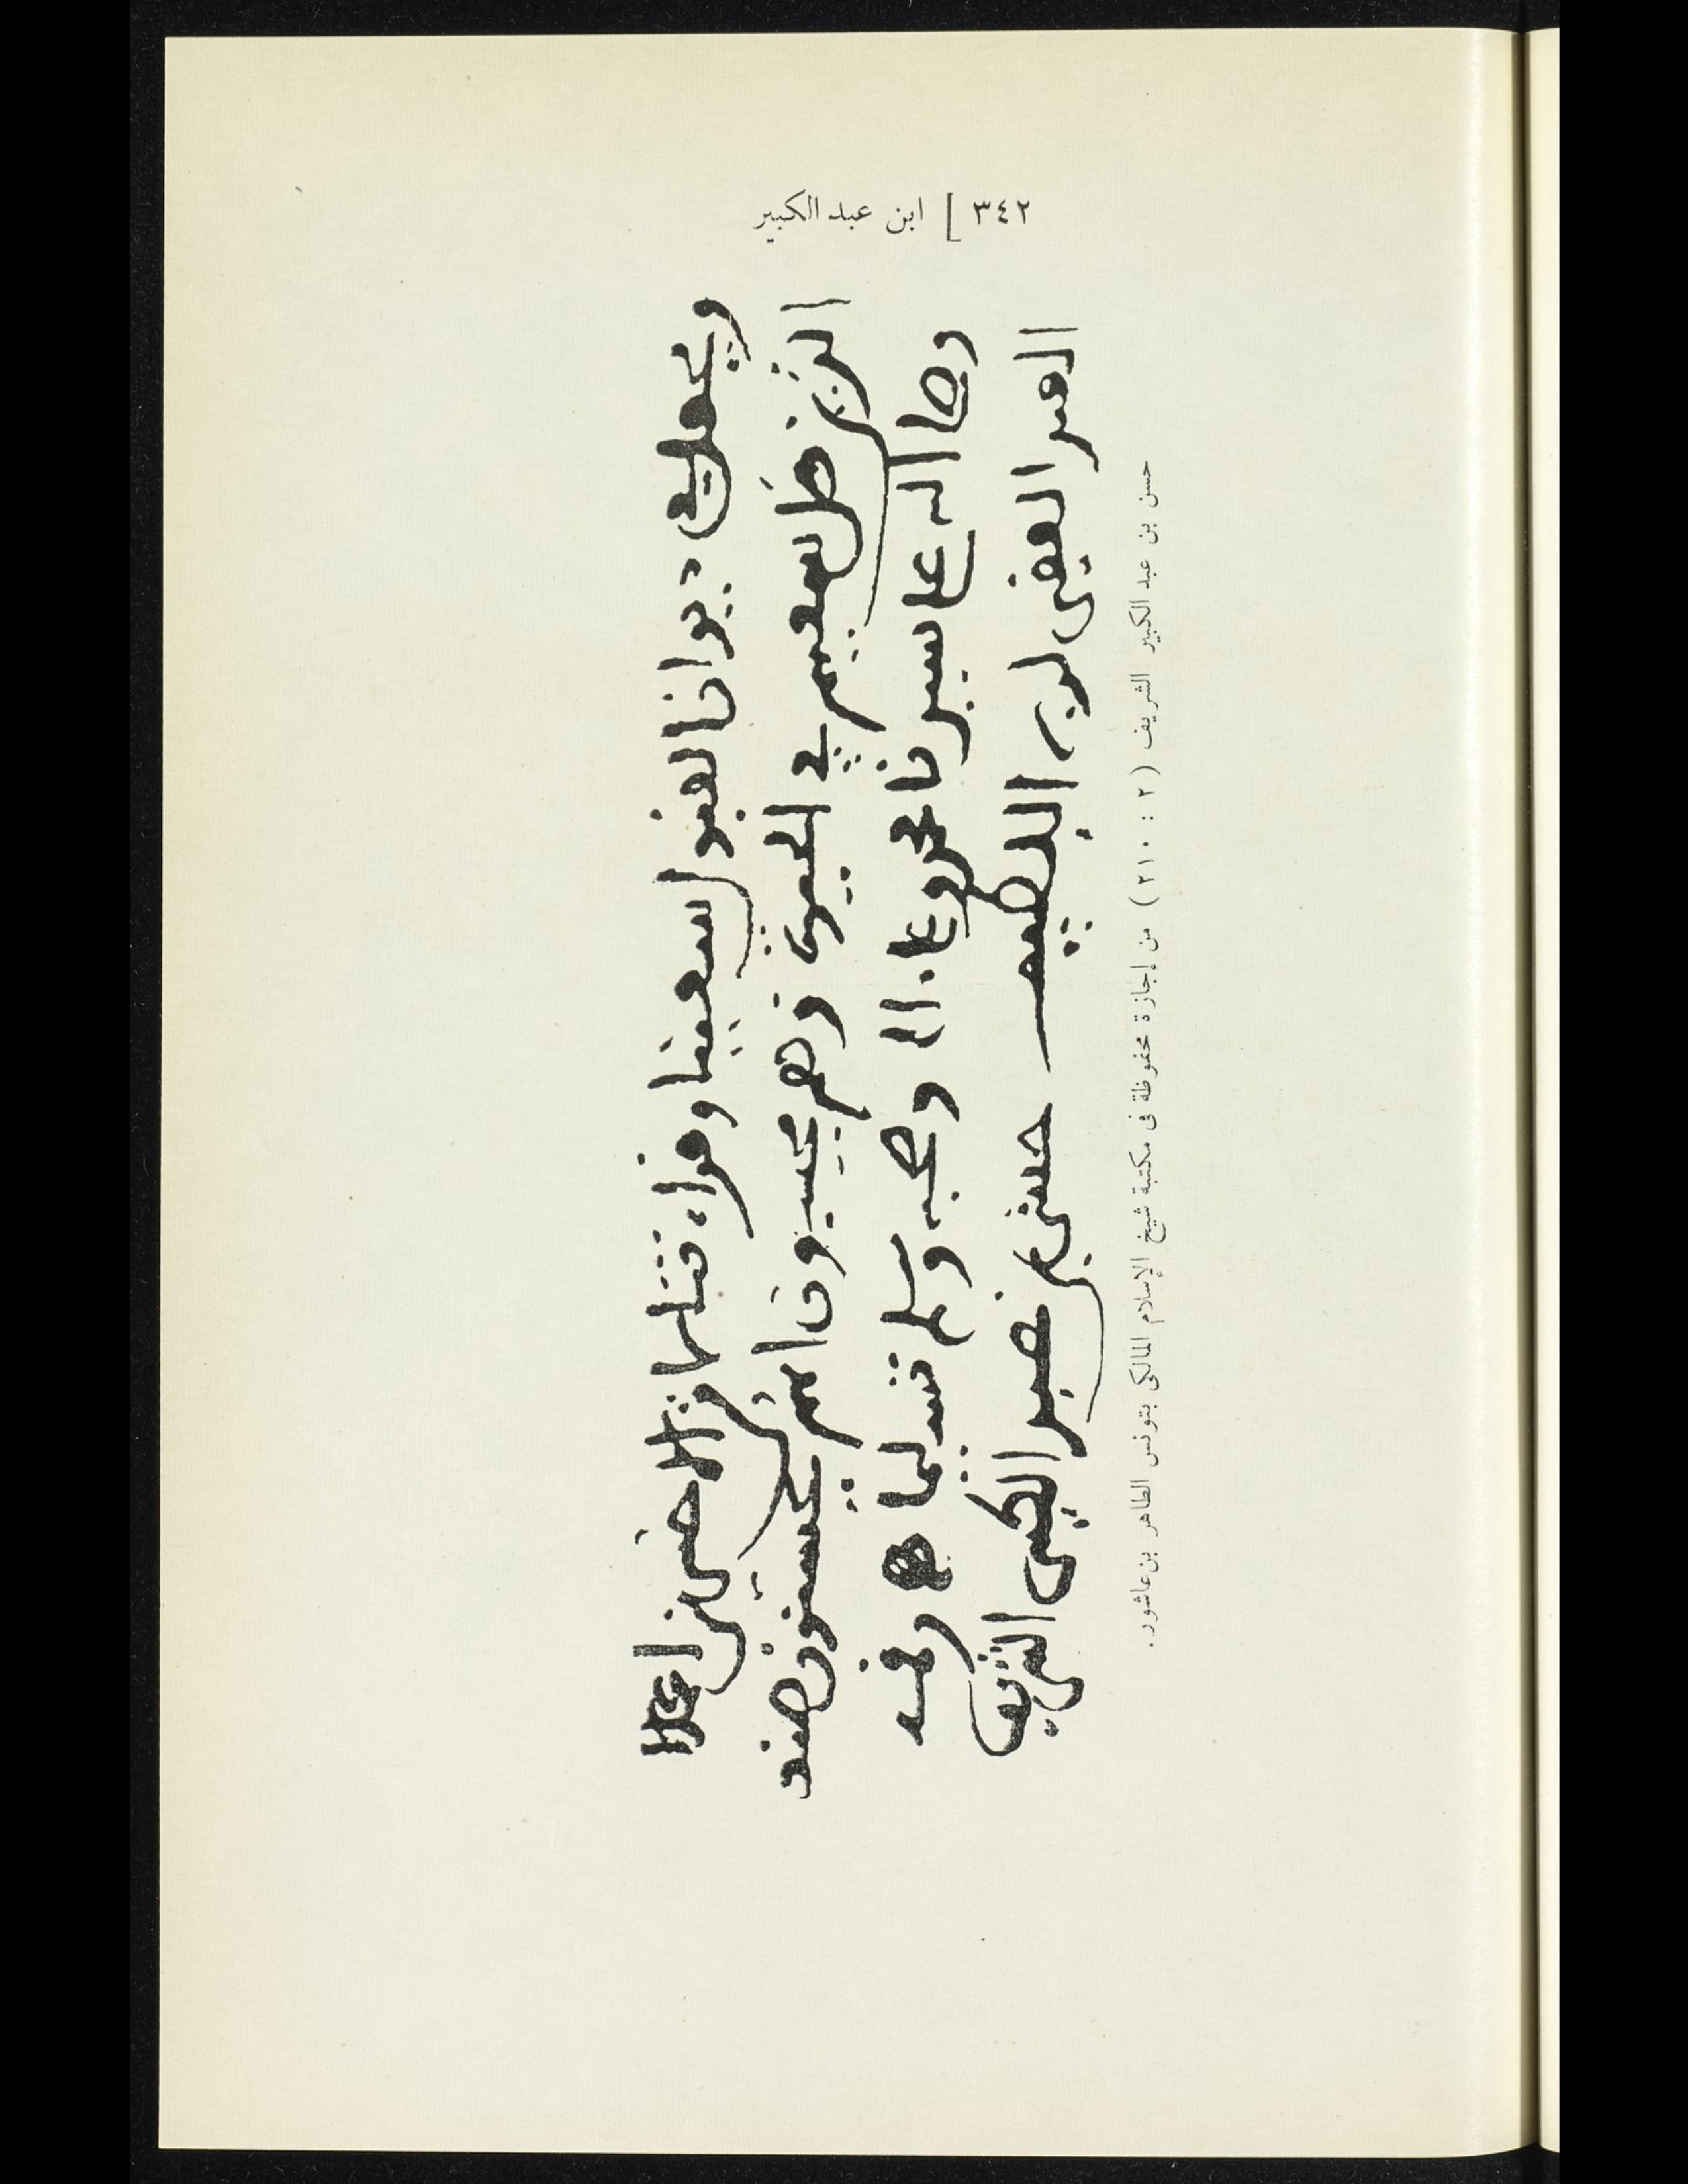 ٣٤٢ ] ابن عبد الكبير
ويجعله في ديوان القبول سعينا و
الذين ضل سعيهم في الحيوة الدنيا وهم يحسبون انهم يحسنون صنعا
وصلى الله على سيدنا محمد وعلى اله وصحبه وسلم تسليما
العبد الفقير لربه اللطيف حسن بن عبد الكبير الشريف
حسن بن عبد الكبير الشريف ( ٢ : ٢١٠ ) من إجازة محفوظة فى مكتبة شيخ الإسلام المالكى بتونس الطاهر بن عاشور .